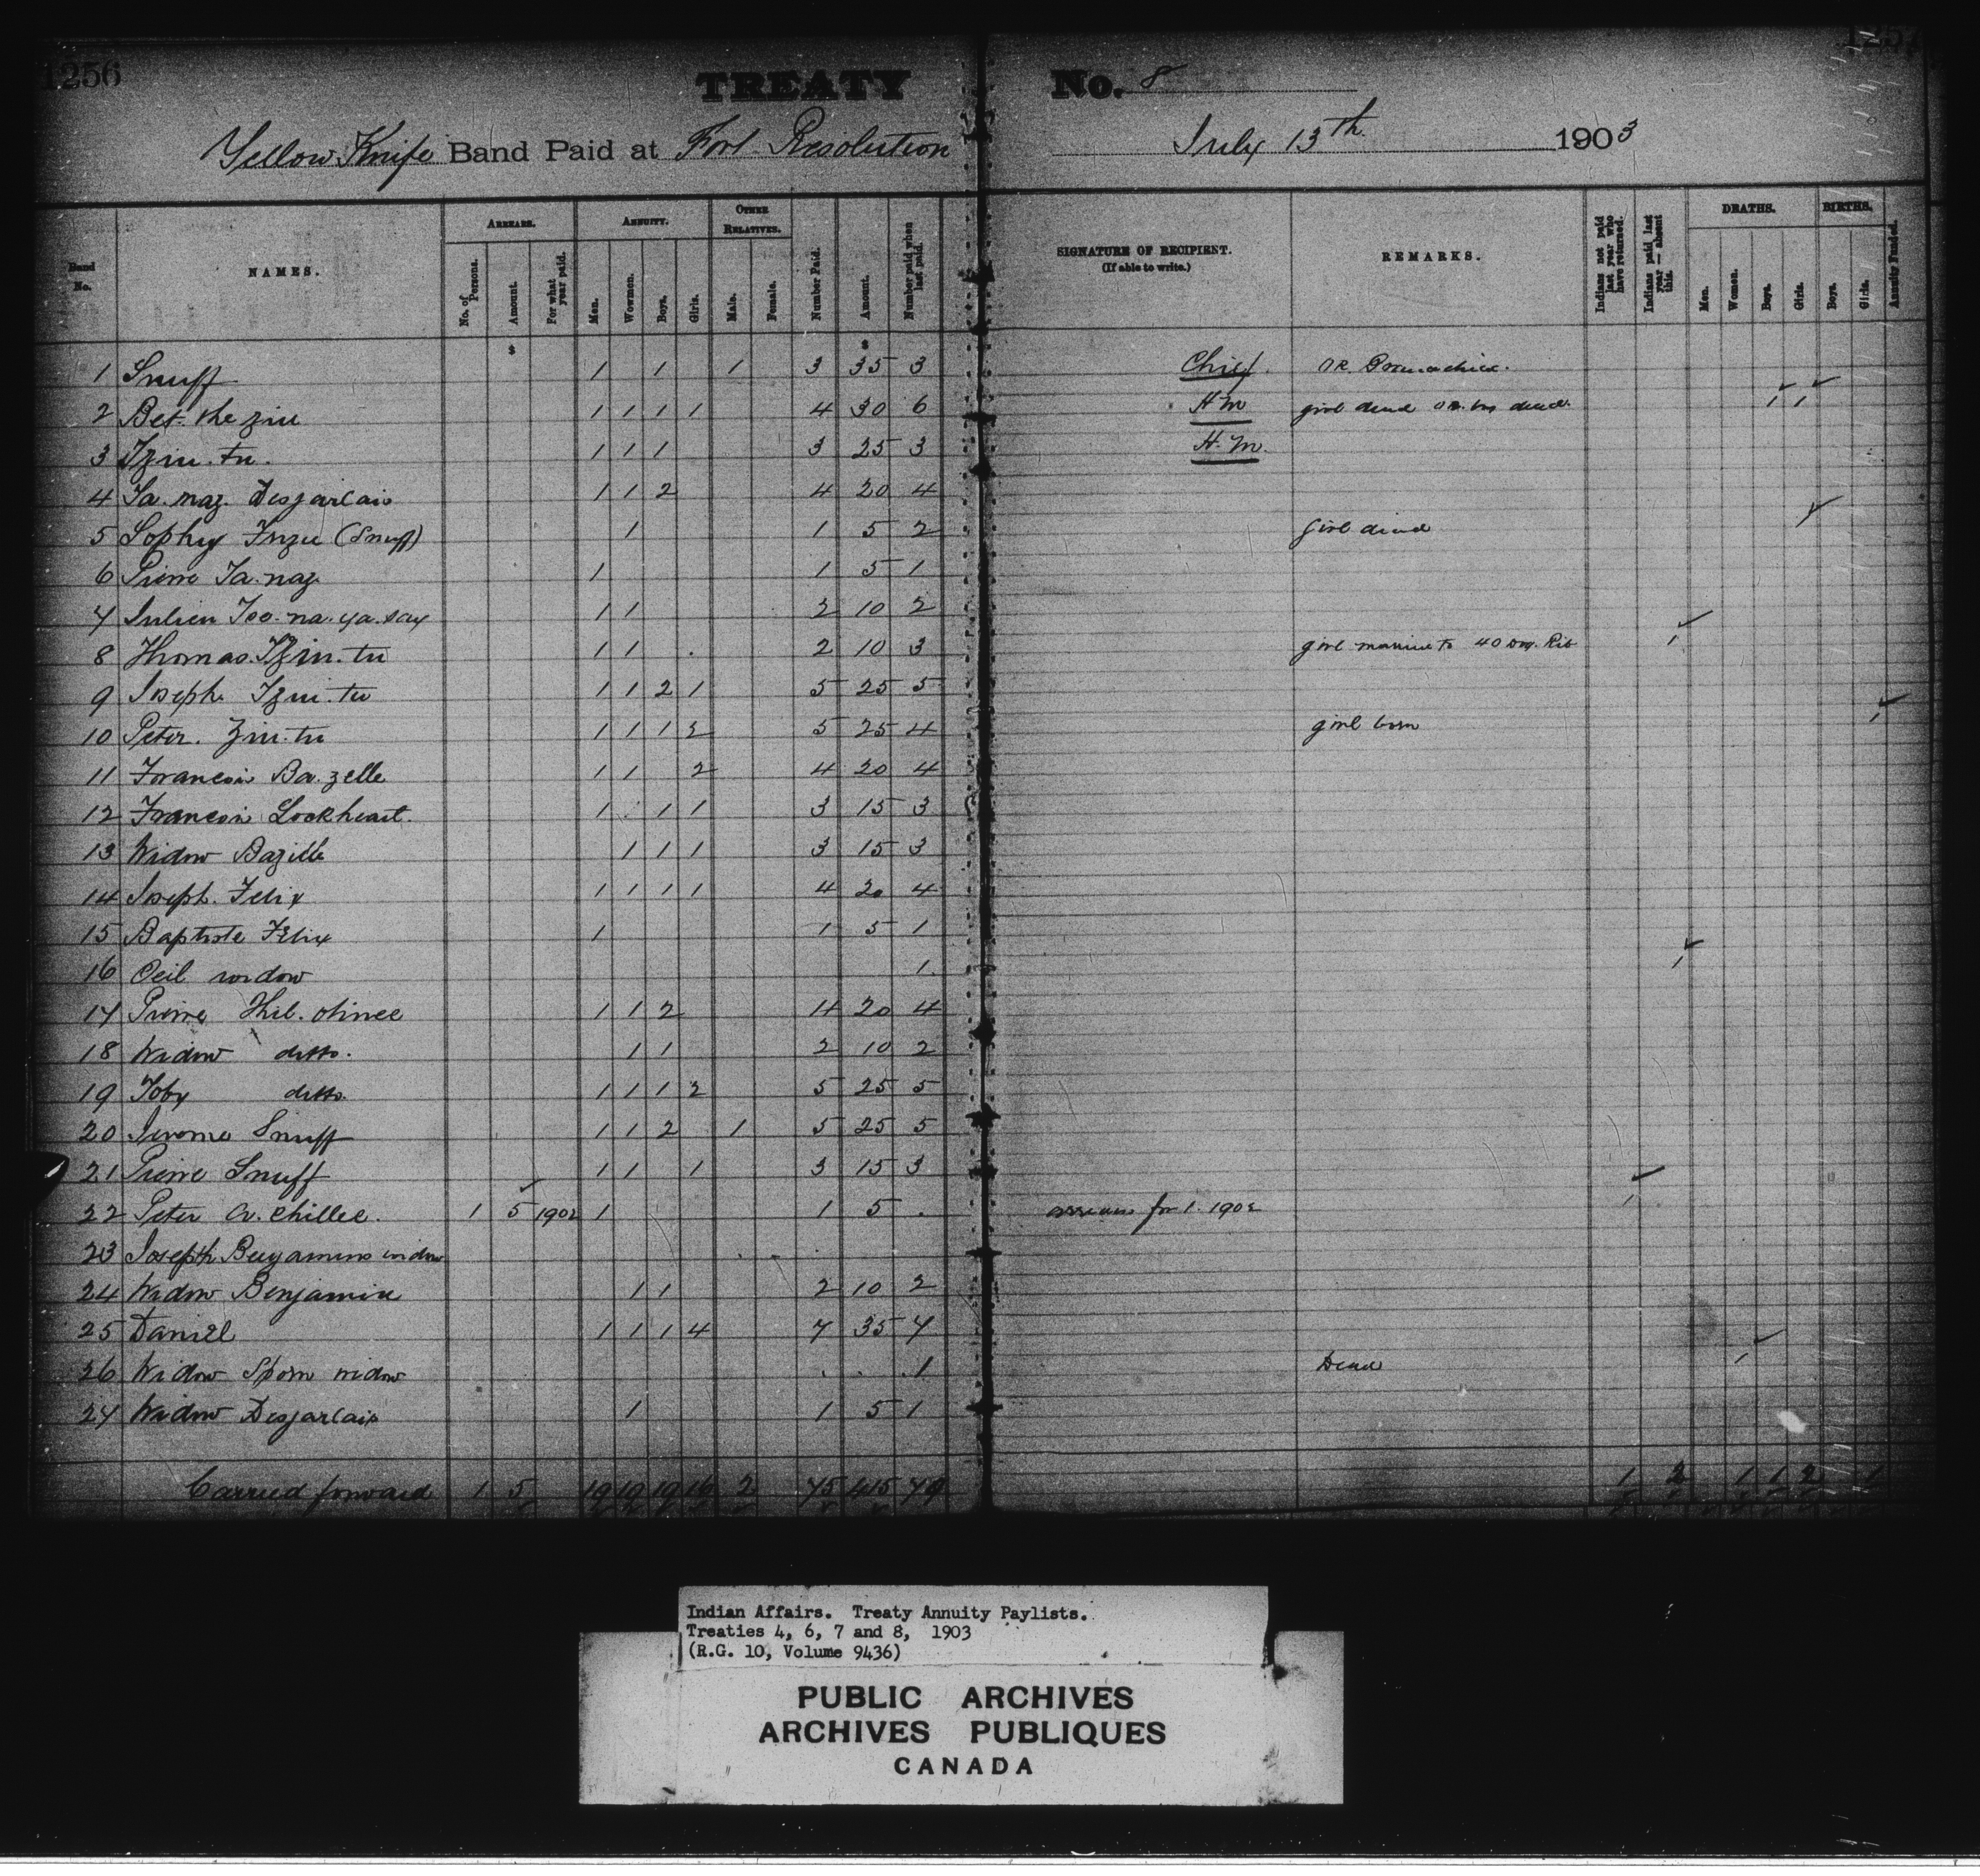 1256
TREATY No. 8
1257
Yellow Knife Band Paid at Fort Resolution July 13th 1903
Band No. NAMES. ARREARS. No. of Persons. Amount. For what year paid. ANNUITY. Men. Women. Boys. Girls. OTHER RELATIVES. Male. Female. Number Paid. Amount. Number paid when last paid. SIGNATURE OF RECIPIENT. (If able to write.) REMARKS. Indians not paid last year who have returned. Indians paid last year — absent this. DEATHS. Men. Women. Boys. Girls. BIRTHS. Boys. Girls. Annuity Funded.
$ $
1 Snuff 1 1 1 3 35 3 Chief. OR.
2 Bet. the ziu 1 1 1 1 4 30 6 H M girl dead dead 1 1
3 Tziu. tu. 1 1 1 3 25 3 H. M.
4 Ta. naz. Desjarlais 1 1 2 4 20 4
5 Sophy Inzu (Snuff) 1 1 5 2 girl dead
6 Pierre Ta. naz 1 1 5 1
7 Julien Too. na. ya. say 1 1 2 10 2
8 Thomas Tziu. tu 1 1 2 10 3 girl married to 40 Dog. Rib 1
9 Joseph Tziu. tu 1 1 2 1 5 25 5
10 Peter. Ziu. tu 1 1 1 2 5 25 4 girl born 1
11 Francois Ba. zelle 1 1 2 4 20 4
12 Francois Lockheart. 1 1 1 3 15 3
13 Widow Bazille 1 1 1 3 15 3
14 Joseph. Felix 1 1 1 1 4 20 4
15 Baptiste Felix 1 1 5 1
16 Oeil widow 1 1
17 Pierre Thil. otinee 1 1 2 4 20 4
18 Widow ditto. 1 1 2 10 2
19 Toby ditto. 1 1 1 2 5 25 5
20 Jerome Snuff 1 1 2 1 5 25 5
21 Pierre Snuff 1 1 1 3 15 3
22 Peter a. chillee. 1 5 1902 1 1 5 arrears for 1. 1902 1
23 Joseph Benjamins widow
24 Widow Benjamin 1 1 2 10 2
25 Daniel 1 1 1 4 7 35 7
26 Widow Spom widow 1 Dead 1
27 Widow Desjarlais 1 1 5 1
Carried forward 1 5 19 19 19 16 2 75 415 79 1 2 1 1 2 1
Indian Affairs. Treaty Annuity Paylists.
Treaties 4, 6, 7 and 8, 1903
(R.G. 10, Volume 9436)
PUBLIC ARCHIVES
ARCHIVES PUBLIQUES
CANADA